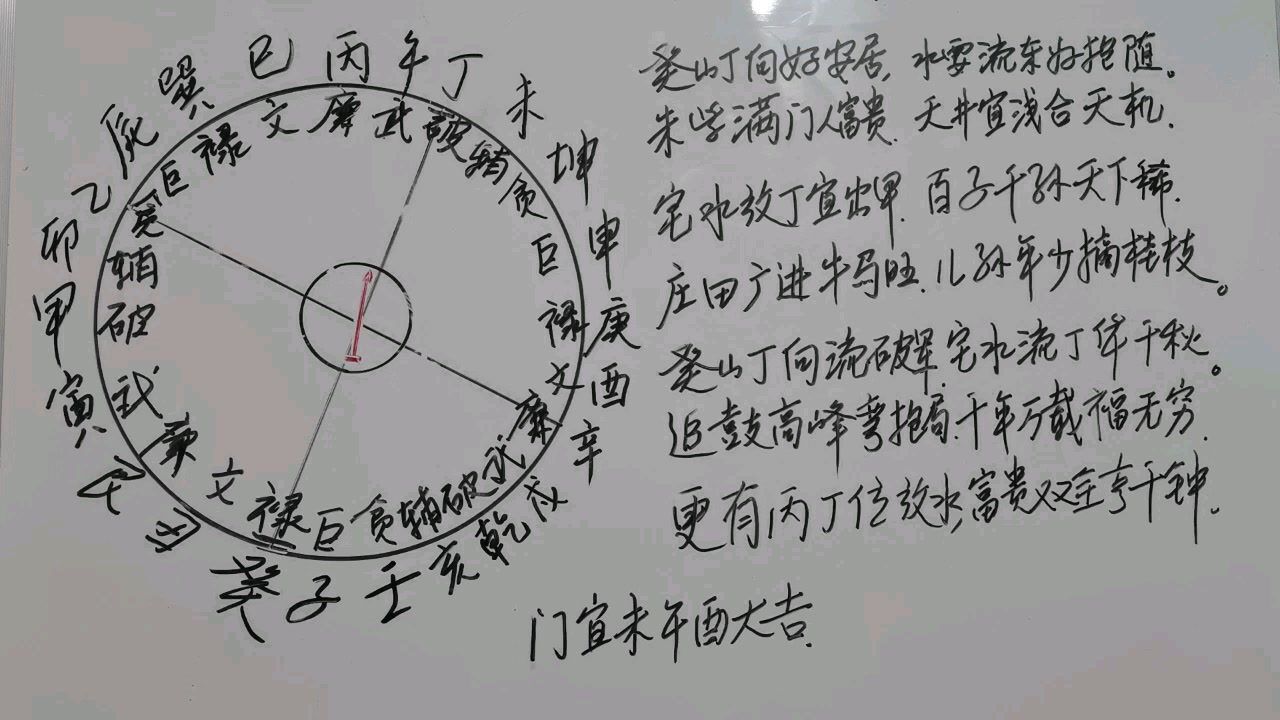 巳丙午丁未坤申庚酉辛戌乾亥壬子癸丑艮寅甲卯乙辰巽
文廉武破辅贪巨禄文廉武破辅贪巨禄文廉武破辅贪巨禄
癸山丁向好安居,水要流东好抱随。
朱紫满门人富贵,天井宜浅合天机.
宅水放丁宜出甲,百子千孙天下稀.
庄田广进牛马旺,儿孙年少摘桂枝。
癸山丁向流破军,宅水流丁传千秋。
追鼓高峰弯抱局,千年万载福无穷.
更有丙丁位放水,富贵双全享千钟.
门宜未午酉大吉.